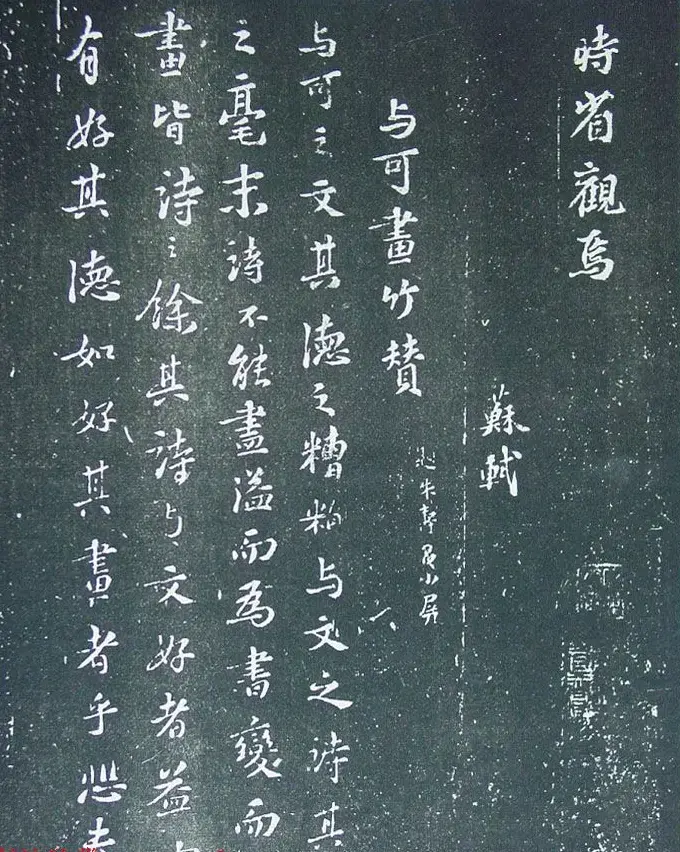 時省觀焉
蘇軾
与可畫竹賛
小屏
与可之文其德之糟粕与文之詩其
之毫末詩不能盡溢而為書變而
畫皆詩之餘其詩与文好者益
有好其德如好其畫者乎悲夫